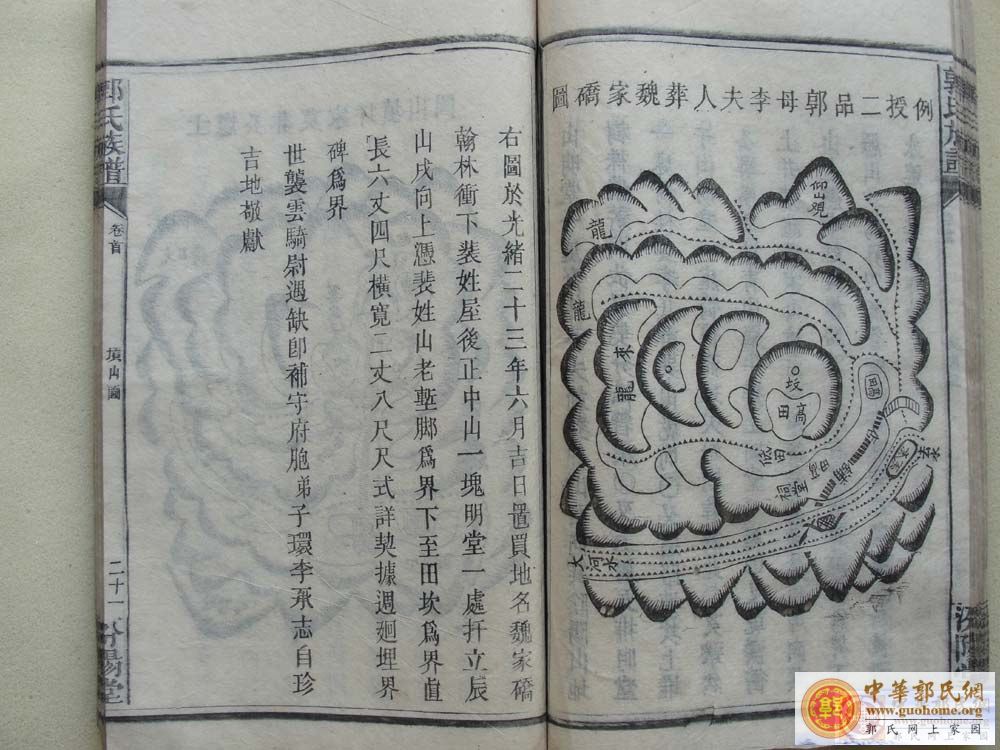 例授二品郭母李夫人葬魏家礄圖
仰山觀
龍
龍
來
龍
坟
高
田
低田
福堂
大河水
右圖於光緒二十三年六月吉日置買地名魏家礄
翰林衝下裴姓屋後正中山一塊明堂一處扦立辰
山戌向上憑裴姓山老塹脚爲界下至田坎爲界直
長六丈四尺横寬二丈八尺尺式詳契據週廻埋界
碑爲界
世襲雲騎尉遇缺卽補守府胞弟子環李承志自珍
吉地敬獻
郭氏族譜
卷首
墳山圖
二十一
汾陽堂
郭氏族譜
中華郭氏網
www.guohome.org
郭氏网上家园